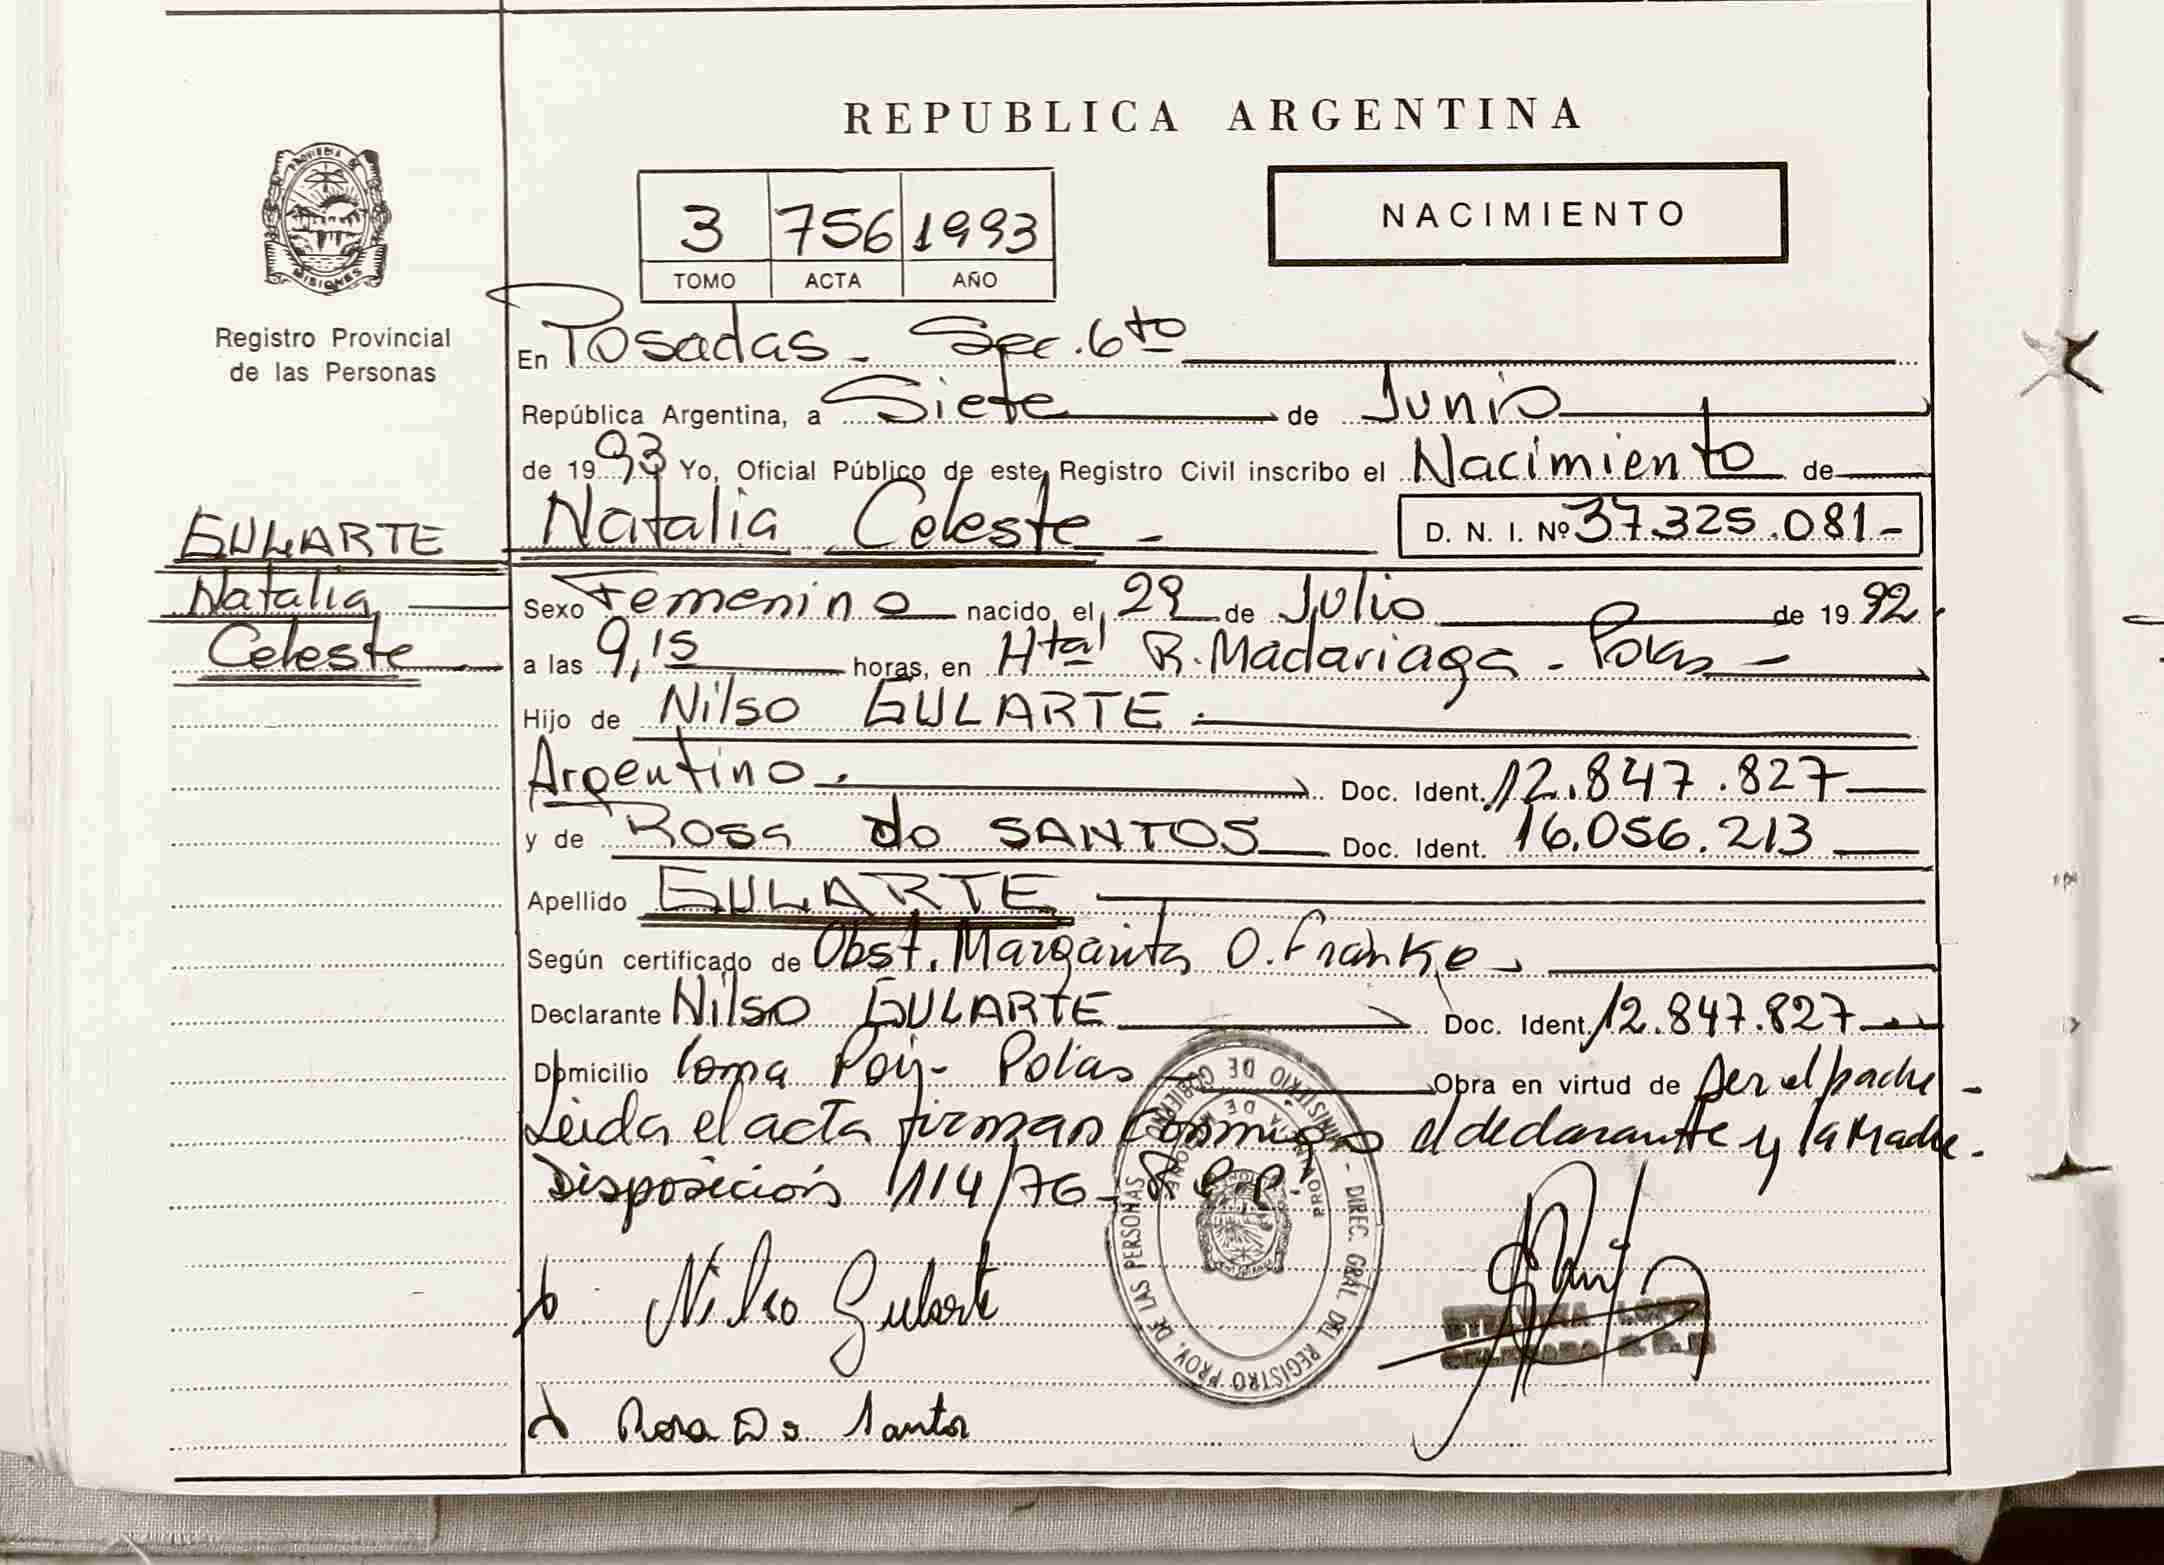 REPUBLICA ARGENTINA
PROVINCIA DE
MISIONES
Registro Provincial
de las Personas
3 756 1993
TOMO ACTA AÑO
NACIMIENTO
En Posadas - Sec. 6to
República Argentina, a Siete de Junio
de 1993 Yo, Oficial Público de este Registro Civil inscribo el Nacimiento de
GULARTE
Natalia
Celeste
Natalia Celeste - D. N. I. Nº 37.325.081-
Sexo Femenino nacido el, 29 de Julio de 1992
a las 9,15 horas, en Htal R. Madariaga - Pdas -
Hijo de Nilso GULARTE.
Argentino. Doc. Ident. 12.847.827
y de Rosa do SANTOS Doc. Ident. 16.056.213
Apellido GULARTE
Según certificado de Obst. Margarita O. Franke.
Declarante Nilso GULARTE Doc. Ident. 12.847.827
Domicilio Loma Poy- Pdas Obra en virtud de ser el padre -
Leida el acta firman conmigo el declarante y la Madre.
Disposición 114/76- R.P.P.
MINISTERIO DE GOBIERNO - DIREC. GRAL. DEL REGISTRO PROV. DE LAS PERSONAS
PROVINCIA DE MISIONES
Nilso Gularte
LOPEZ
Rosa Do Santos